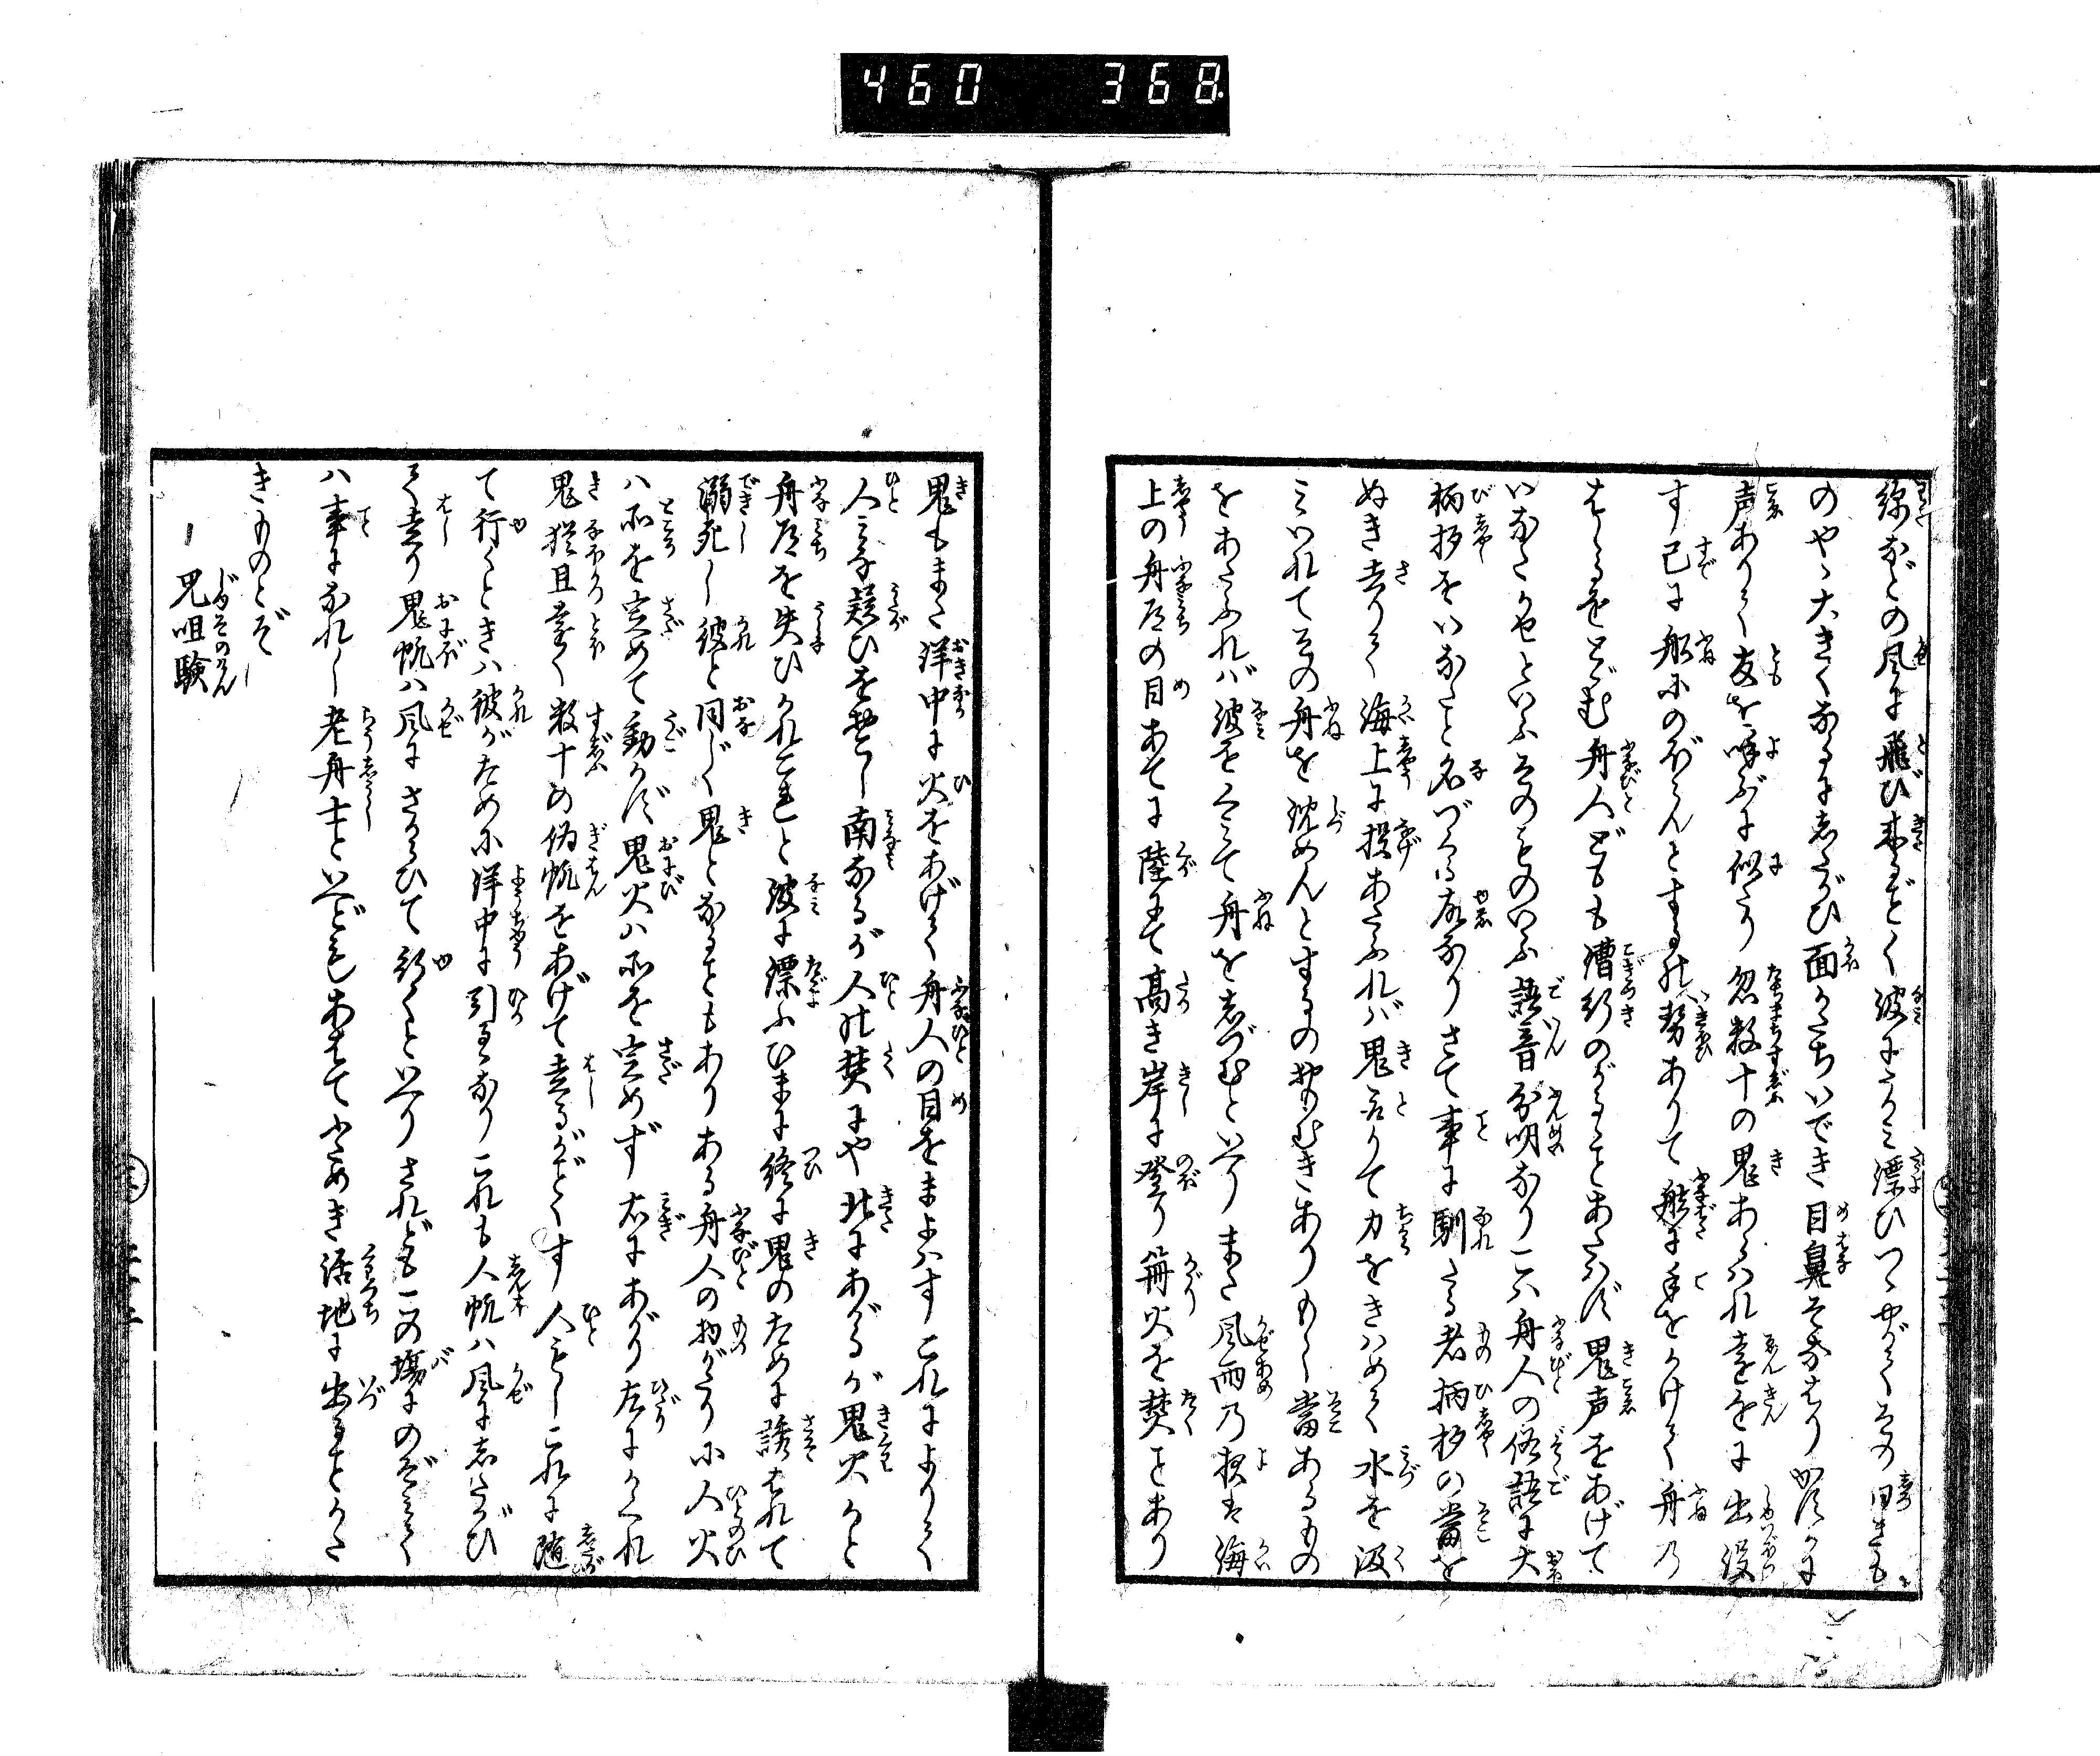 460 368
綿などの風に飛び来るごとく波にうかみ漂ひつゝやがてその白きも
のやゝ大きくなるにしたがひ面かたちいでき目鼻そなはりかすかに
声ありて友を呼ぶに似たり忽数十の鬼あらはれ遠近に出没
す已に船にのぼらんとするの勢ありて舷に手をかけて舟の
はしるをとゞむ舟人どもも漕行のがるゝことあたはず鬼声をあげて
いなたかせといふそのものいふ語音分明なりこは舟人の俗語に大
柄杓をいなたと名づくる故なりさて事に馴たる者柄杓の底を
ぬき去りて海上に投あたふれば鬼取りて力をきはめて水を汲
こみいれてその舟を沈めんとするのおもむきありもし底あるもの
をあたふれば波をくみて舟をしづむといへりまた風雨の夜は海
上の舟道の目あてに陸にて高き岸に登り篝火を焚ことあり
鬼もまた洋中に火をあげて舟人の目をまよはすこれによりて
人みな疑ひをおこし南なるが人の焚にや北にあがるが鬼火かと
舟道を失ひかれこれと波に漂ふひまに終に鬼のために誘はれて
溺死し彼と同じく鬼となることもありある舟人の物がたりに人火
は所を定めて動かず鬼火は所を定めず右にあがり左にかくれ
鬼猶且遠く数十の偽帆をあげて走るがごとくす人もしこれに随
て行くときは彼がために洋中に引るゝなりこれも人帆は風にしたがひ
て走り鬼帆は風にさかひて行くといへりされどもこの場にのぞみて
は事になれし老舟士といへどもあはてふためき活地に出ることかた
きものとぞ
児咀験